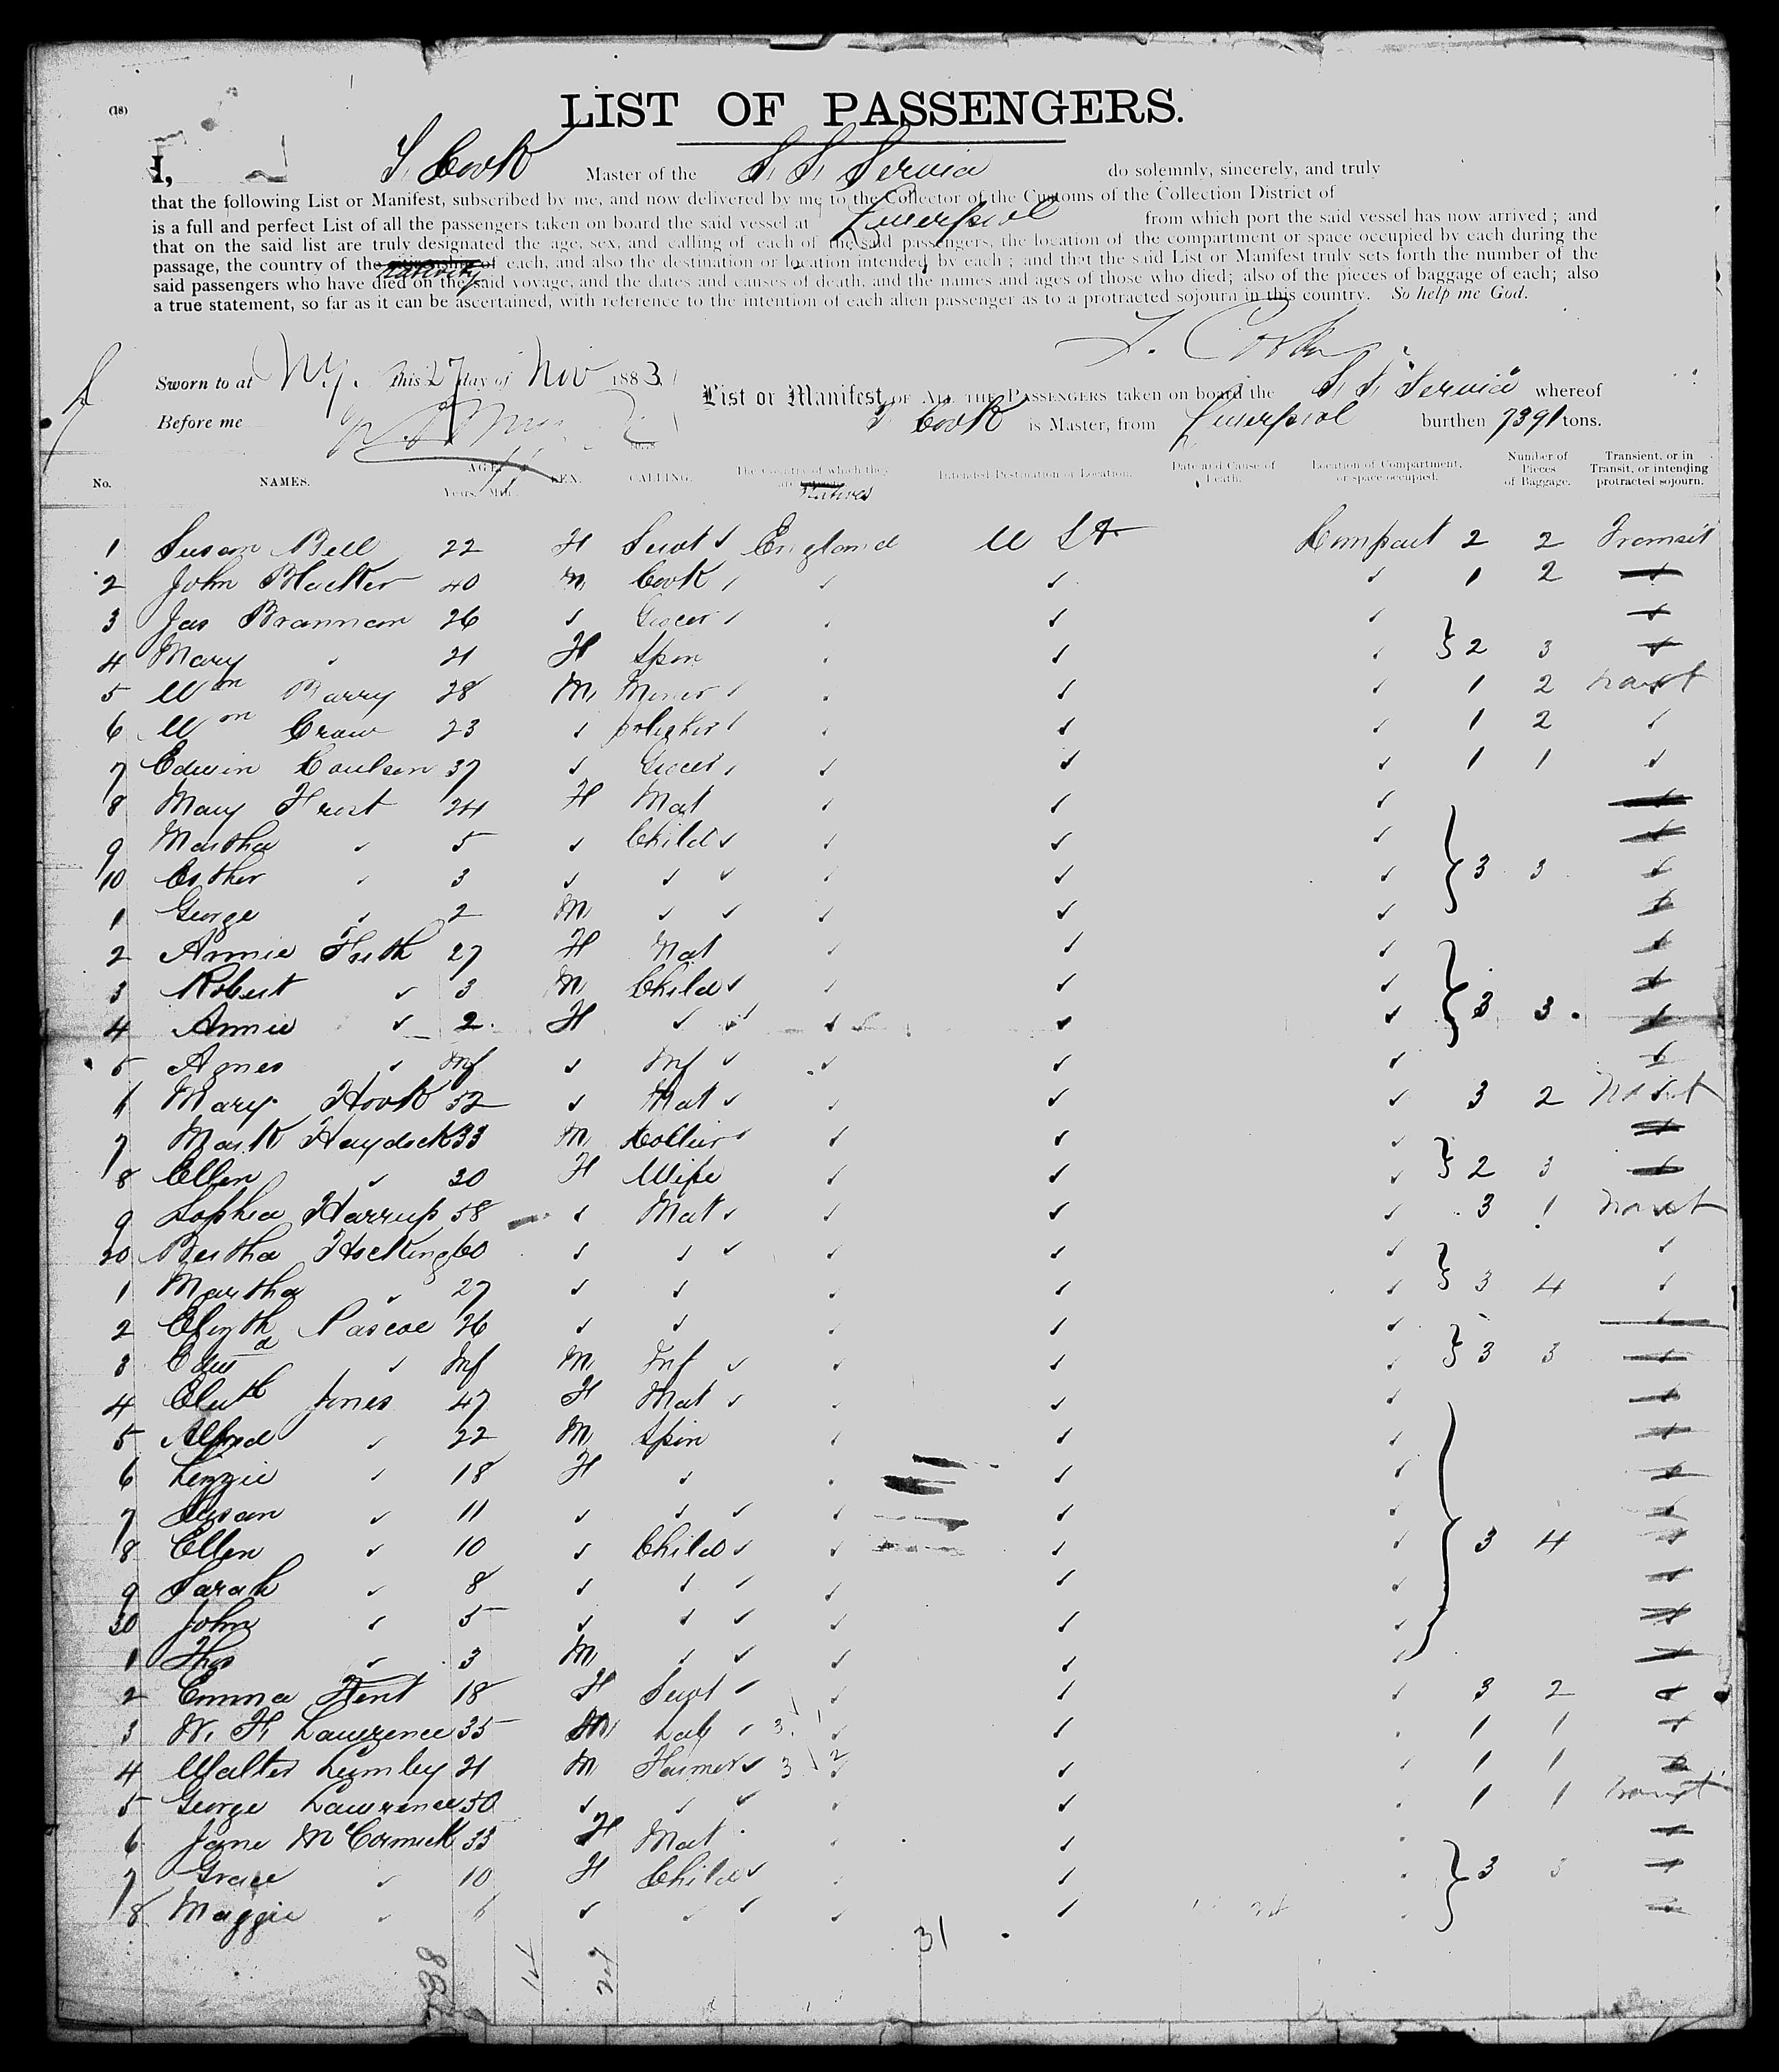 (18)
LIST OF PASSENGERS.
I, T. Cook Master of the S. S. Servia do solemnly, sincerely, and truly
that the following List or Manifest, subscribed by me, and now delivered by me to the Collector of the Customs of the Collection District of
is a full and perfect List of all the passengers taken on board the said vessel at Liverpool from which port the said vessel has now arrived; and
that on the said list are truly designated the age, sex, and calling of each of the said passengers, the location of the compartment or space occupied by each during the
passage, the country of the nativity of each, and also the destination or location intended by each; and that the said List or Manifest truly sets forth the number of the
said passengers who have died on the said voyage, and the dates and causes of death, and the names and ages of those who died; also of the pieces of baggage of each; also
a true statement, so far as it can be ascertained, with reference to the intention of each alien passenger as to a protracted sojourn in this country. So help me God.
T. Cook
Sworn to at N.Y. this 27 day of Nov 1883
List or Manifest OF ALL THE PASSENGERS taken on board the S. S. "Servia" whereof
Before me
T Cook is Master, from Liverpool burthen 7391 tons.
No. NAMES. AGE. Years. Mth. SEX. CALLING. The Country of which they are Natives Intended Destination or Location. Date and Cause of Death. Location of Compartment, or space occupied. Number of Pieces of Baggage. Transient, or in Transit, or intending protracted sojourn.
1 Susan Bell 22 F Servt ✓ England U St Compart 2 2 Transit
2 John Blacker 40 M Cook ✓ ✓ ✓ 1 2
3 Jas Brannan 26 ✓ Grocer ✓ ✓ ✓
4 Mary ✓ 21 F Spin ✓ ✓ 2 3
5 Wm Barry 28 M Miner ✓ ✓ ✓ 1 2 Transt
6 Wm Craw 23 ✓ polisher ✓ ✓ ✓ 1 2 ✓
7 Edwin Coulson 37 ✓ Grocer ✓ ✓ ✓ 1 1 ✓
8 Mary Frost 24 F Mat ✓ ✓ ✓
9 Martha ✓ 5 ✓ Child ✓ ✓ ✓ ✓
10 Esther ✓ 3 ✓ ✓ ✓ ✓ ✓ 3 3
1 George ✓ 2 M ✓ ✓ ✓ ✓ ✓
2 Annie Frith 27 F Mat ✓ ✓ ✓
3 Robert ✓ 3 M Child ✓ ✓ ✓ ✓
4 Annie ✓ 2 F ✓ ✓ ✓ ✓ ✓ 3 3
5 Agnes ✓ Inf ✓ Inf ✓ ✓ ✓ ✓
6 Mary Hook 52 ✓ Mat ✓ ✓ ✓ ✓ 3 2 Transit
7 Mark Haydock 33 M Collier ✓ ✓ ✓ ✓
8 Ellen ✓ 30 F Wife ✓ ✓ ✓ 2 3
9 Sophia Harrup 58 ✓ Mat ✓ ✓ ✓ ✓ 3 1 Transt
20 Bertha Hocking 60 ✓ ✓ ✓ ✓ ✓ ✓ ✓
1 Martha ✓ 27 ✓ ✓ ✓ ✓ ✓ 3 4 ✓
2 Elizth Pascoe 26 ✓ ✓ ✓ ✓ ✓
3 Edwd ✓ Inf M Inf ✓ ✓ ✓ ✓ 3 3
4 Elizth Jones 47 F Mat ✓ ✓ ✓ ✓
5 Alfred ✓ 22 M Spin ✓ ✓ ✓
6 Lizzie ✓ 18 F ✓ ✓ ✓ ✓
7 Susan ✓ 11 ✓ ✓ ✓ ✓ ✓ ✓
8 Ellen ✓ 10 ✓ Child ✓ ✓ ✓ ✓ 3 4
9 Sarah ✓ 8 ✓ ✓ ✓ ✓ ✓ ✓
30 John ✓ 5 ✓ ✓ ✓ ✓ ✓ ✓
1 Thos ✓ 3 M ✓ ✓ ✓ ✓ ✓
2 Emma Kent 18 F Servt ✓ ✓ ✓ ✓ 3 2
3 W. H. Lawrence 35 M Lab ✓ ✓ ✓ 1 1
4 Walter Lumley 21 M Farmer ✓ ✓ ✓ ✓ 1 1
5 George Lawrence 50 ✓ ✓ ✓ ✓ ✓ 1 1 Transt
6 Jane McCormick 33 F Mat ✓ ✓
7 Grace ✓ 10 F Child ✓ ✓ ✓ 3 3
8 Maggie ✓ 6 ✓ ✓ ✓ ✓ ✓
31
14
24